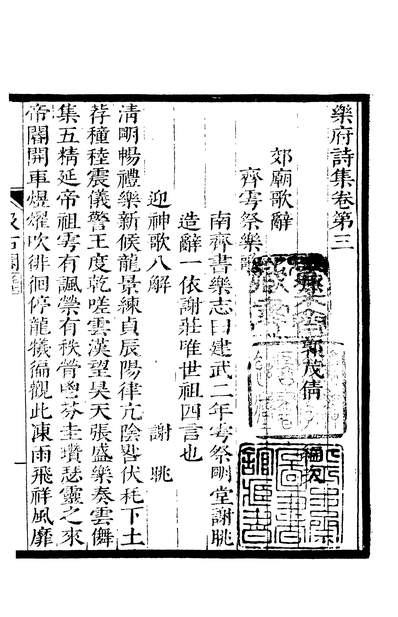 樂府詩集卷第三
郭茂倩 編次
郊廟歌辭
齊雩祭樂歌
南齊書樂志曰建武二年雩祭明堂謝朓
造辭一依謝莊唯世祖四言也
迎神歌八解 謝朓
清明暢禮樂新候龍景練貞辰陽律亢陰晷伏秏下土
荐穜稑震儀警王度乾嗟雲漢望昊天張盛樂奏雲儛
集五精延帝祖雩有諷禜有秩膋鬯芬圭瓚瑟靈之來
帝閽開車煜燿吹徘徊停龍犧徧觀此凍雨飛祥風靡